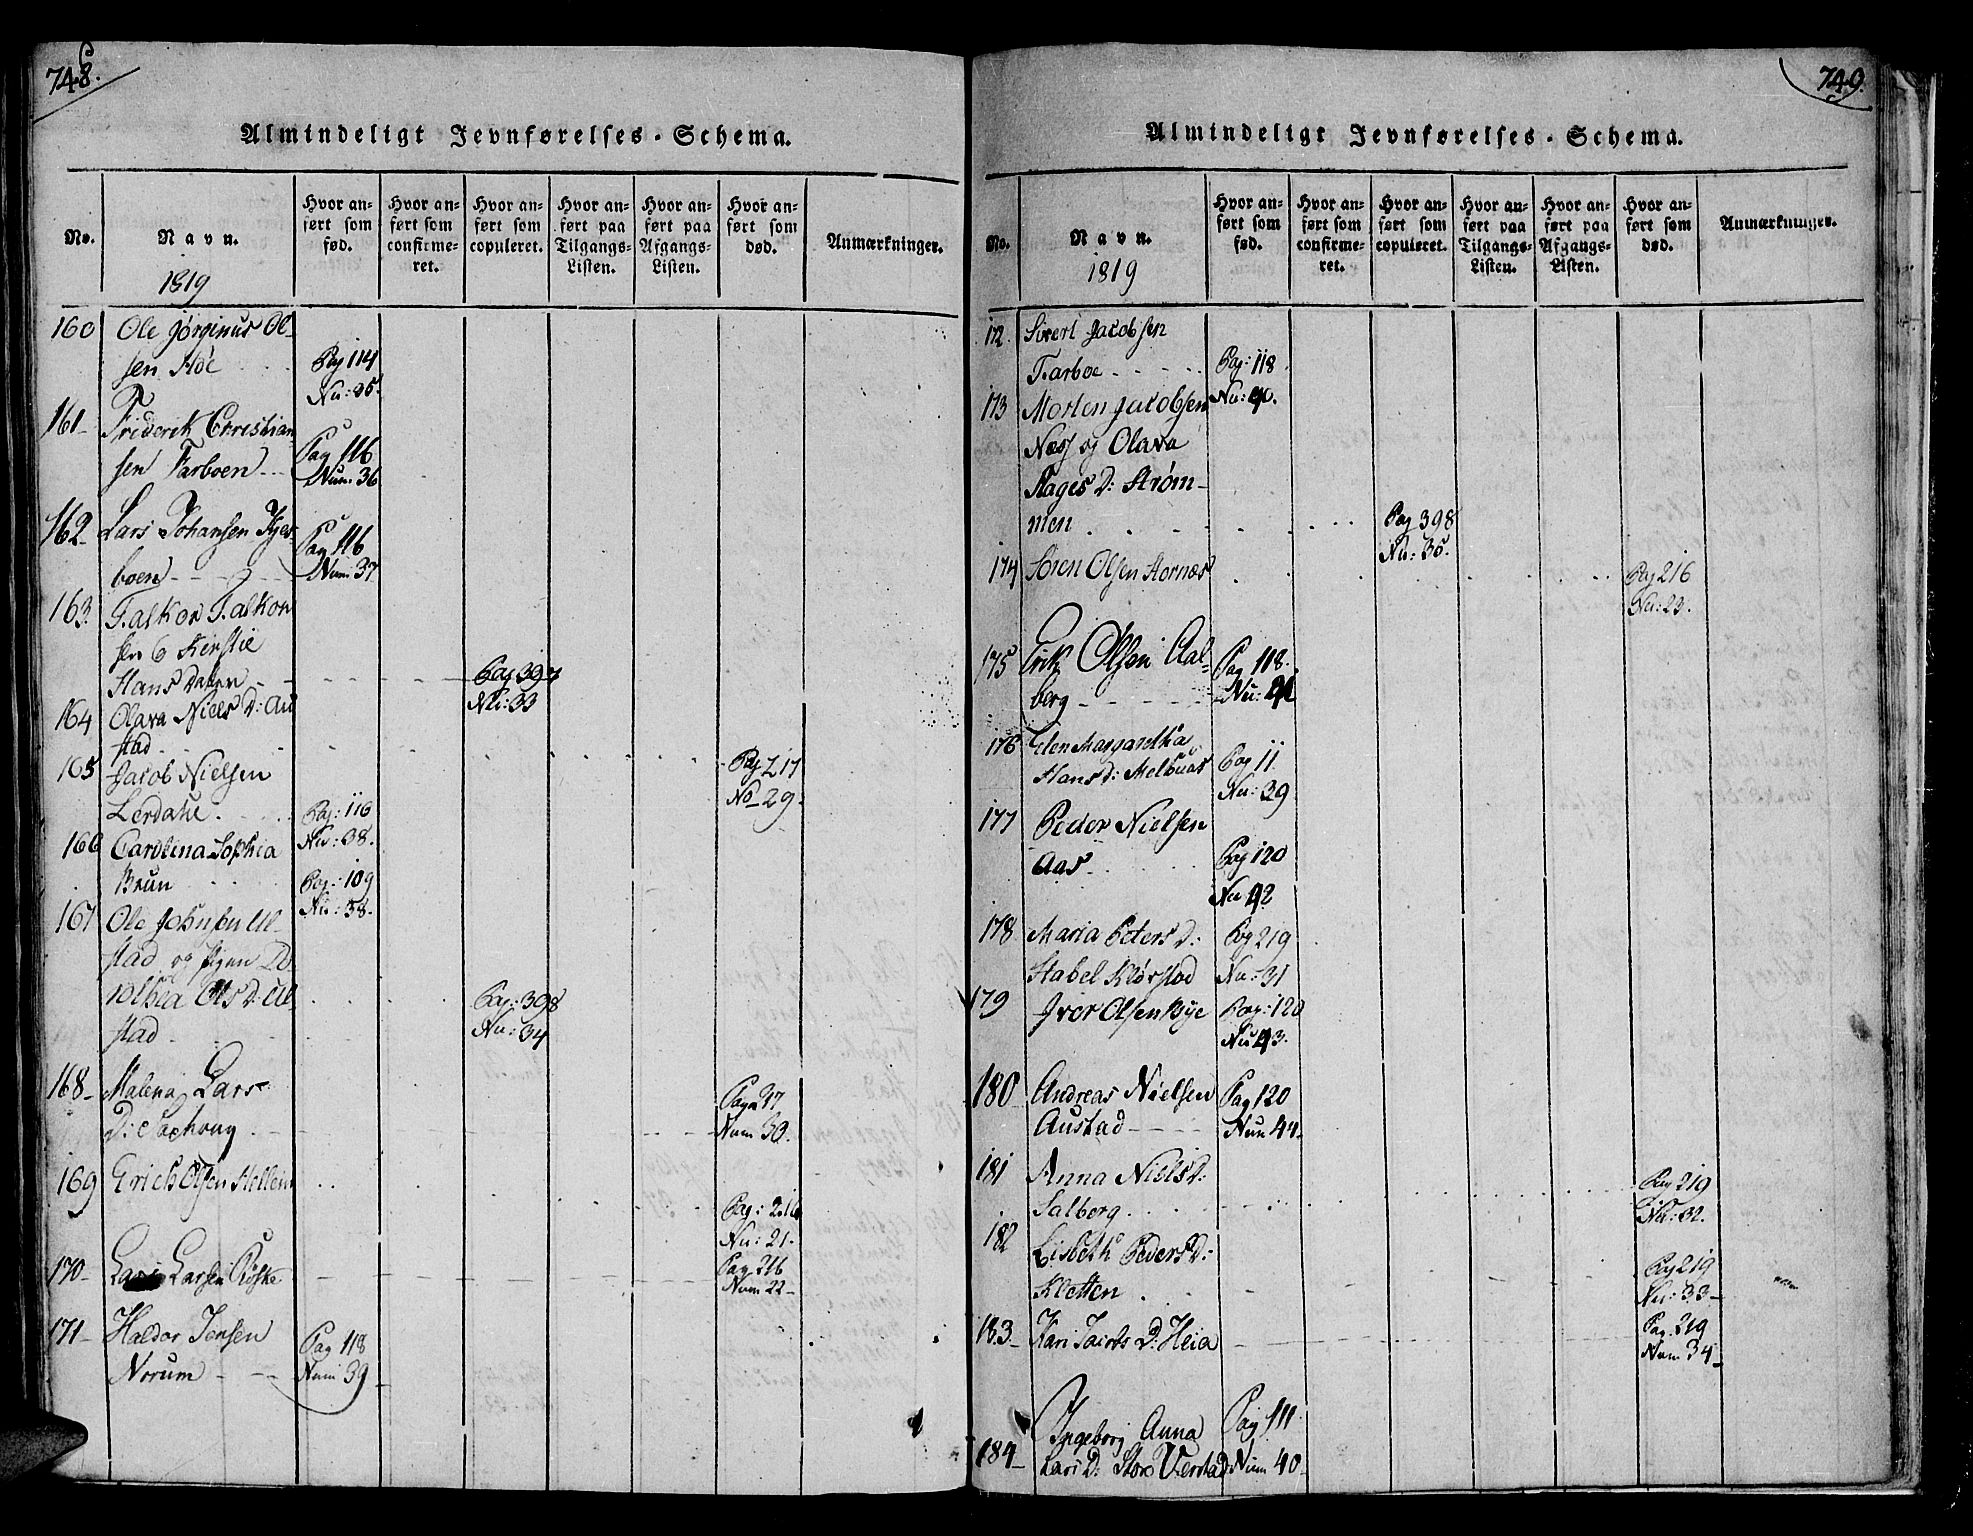 748.
Almindeligt Jevnførelses-Schema.
No.
Navn.
1819
Hvor an-
ført som
fød.
Hvor an-
ført som
confirme-
ret.
Hvor an-
ført som
copuleret.
Hvor an-
ført paa
Tilgangs-
Listen.
Hvor an-
ført paa
Afgangs-
Listen.
Hvor an-
ført som
død.
Anmærkninger.
160 Ole Jørginus Ol-
sen
Pag 114
Nu: 35.
161- Friderik Christian
sen Farboen
Pag 116
Num. 36
162- Lars Johansen
boen
Pag 116
Num. 37
163. Falkor Falkor
sen Kirstie
Hans Dater
Pag 397
Nu: 33
164 Olava Niels D: Au
stad
Pag 217
No 29.
165 Jacob Nielsen
Lerdahl.
Pag: 116
Nu: 38.
166 Carolina Sophia
Brun
Pag: 109
Nu: 38.
167 Ole Johnsen Ul-
stad og Pigen Do
rothea Ols D: Ul-
stad
Pag: 398
Nu: 34
168- Malena Lars-
D: Saxhoug
Pag 217
Num 30.
169 Erich Olsen Hellem
Pag: 216
Nu: 21.
170- Lars Larsen Røske
Pag 216
Num 22-
171- Haldor Jensen
Norum
Pag 118
Num 39
749.
Almindeligt Jevnførelses-Schema.
No.
Navn.
1819
Hvor an-
ført som
fød.
Hvor an-
ført som
confirme-
ret.
Hvor an-
ført som
copuleret.
Hvor an-
ført paa
Tilgangs-
Listen.
Hvor an-
ført paa
Afgangs-
Listen.
Hvor an-
ført som
død.
Anmærkninger.
172. Sivert Jacobsen
Farboe
Pag: 118
Nu: 40.
173 Morten Jacobsen
Næss og Olava
Aages D: Strøm-
men
Pag 398
Nu: 35.
174 Søren Olsen Hornæs
Pag 216
Nu: 23.
175 Erik Olsen Aal-
berg
Pag 118.
Nu: 41
176 Elen Margaretha
Hans D: Melbuas
Pag 11
Nu: 39
177 Peder Nielsen
Aas
Pag 120
Nu 42
178 Maria Peters D:
Stabel Klørstad
Pag 219
Nu: 31
179 Iver Olsen Bye
Pag: 120
Nu 43.
180 Andreas Nielsen
Austad
Pag 120
Num 44
181 Anna Niels D:
Salberg
Pag 219
Nu: 32.
182 Lisbeth Peders D:
Kletten
Pag 219
Nu: 33-
183. Kari Jacobs D: Heia
Pag. 219
Num 34-
184- Ingeborg Anna
Lars D: Store Verstad
Pag 111
Num 40